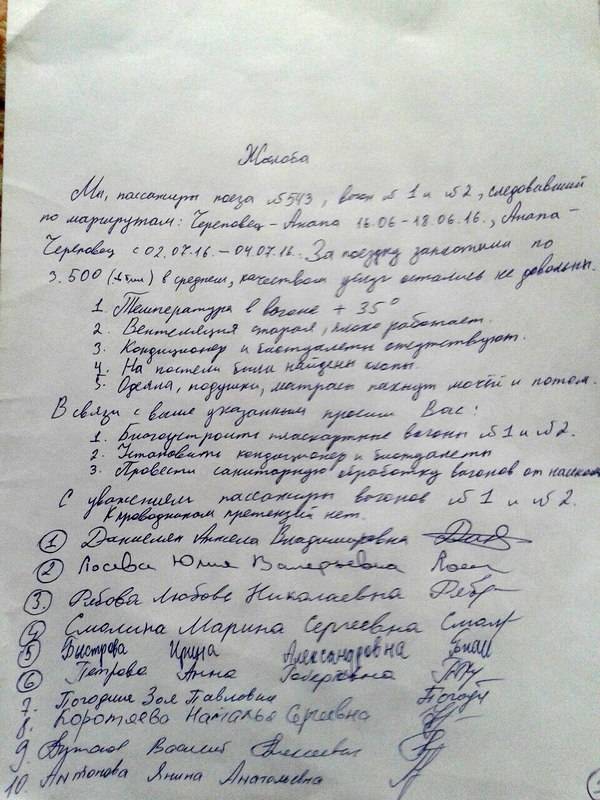 Жалоба
Мы, пассажиры поезда №543, вагон №1 и №2, следовавший
по маршрутам: Череповец - Анапа 16.06-18.06.16., Анапа -
Череповец с 02.07.16. - 04.07.16. За поездку заплатили по
3.500 в среднем, качеством услуг остались не довольны.
1. Температура в вагоне + 35°
2. Вентеляция старая, плохо работает.
3. Кондиционер и биотуалеты отсутствуют.
4. На постели были найдены клопы.
5. Одеяла, подушки, матрасы пахнут мочёй и потом.
В связи с выше указанным просим Вас:
1. Благоустроить пласкартные вагоны №1 и №2.
2. Установить кондиционер и биотуалеты
3. Провести санитарную обработку вагонов от насеком
С уважением пассажиры вагонов №1 и №2.
К проводникам претензий нет.
1 Даниелян Анжела Владимировна
2 Юлия Валерьевна
3. Рябова Любовь Николаевна
4 Смолина Марина Сергеевна
5 Быстрова Ирина Александровна
6 Петрова Анна Робертовна
7. Зоя Павловна
8. Коротяева Наталья Сергеевна
9. Василий Алексеевич
10. Антонова Янина Анатольевна